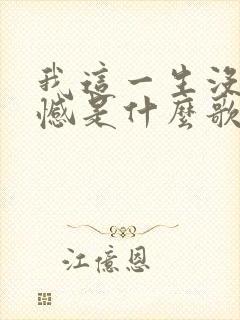 我這一生沒
憾是什麼歌
江億恩